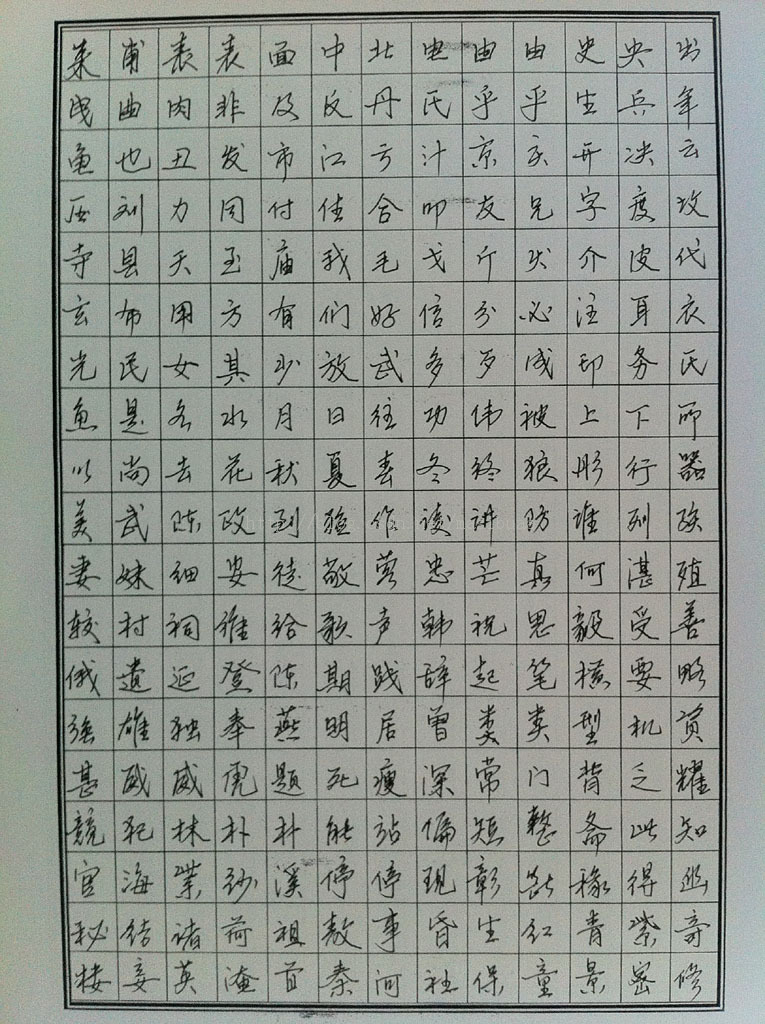 束甫表表面中北电曲由史央出
曳曲肉非及反丹氏乎乎生兵年
鱼也丑发市江亏汁京亥开决云
压刘力同付佳合叩友兄字度坟
寺县天玉庙我毛戈斤犬介皮代
玄布用方有们好信分必注耳衣
光民女其少放武多歹成印务氏
鱼是名水月日往功伟被上下而
以尚去花秋夏春冬终狼彤行器
美武陈政到强作读讲防谁列殊
妻妹细安徒敬莺忠芒真何湛殖
较村祠维给歌声韩祝思毅受善
俄遗延登陈期践辞起笔横要略
强雄独奉燕明居曾类类型机资
甚威威虎题死瘦深常门背乏耀
竞犯林朴朴能站偏短整斋此知
官海业纱溪停停现彰缘得巡
秘结诸荷祖敖事昏生红青紫奇
楼妾英淹首秦河社保童景密修